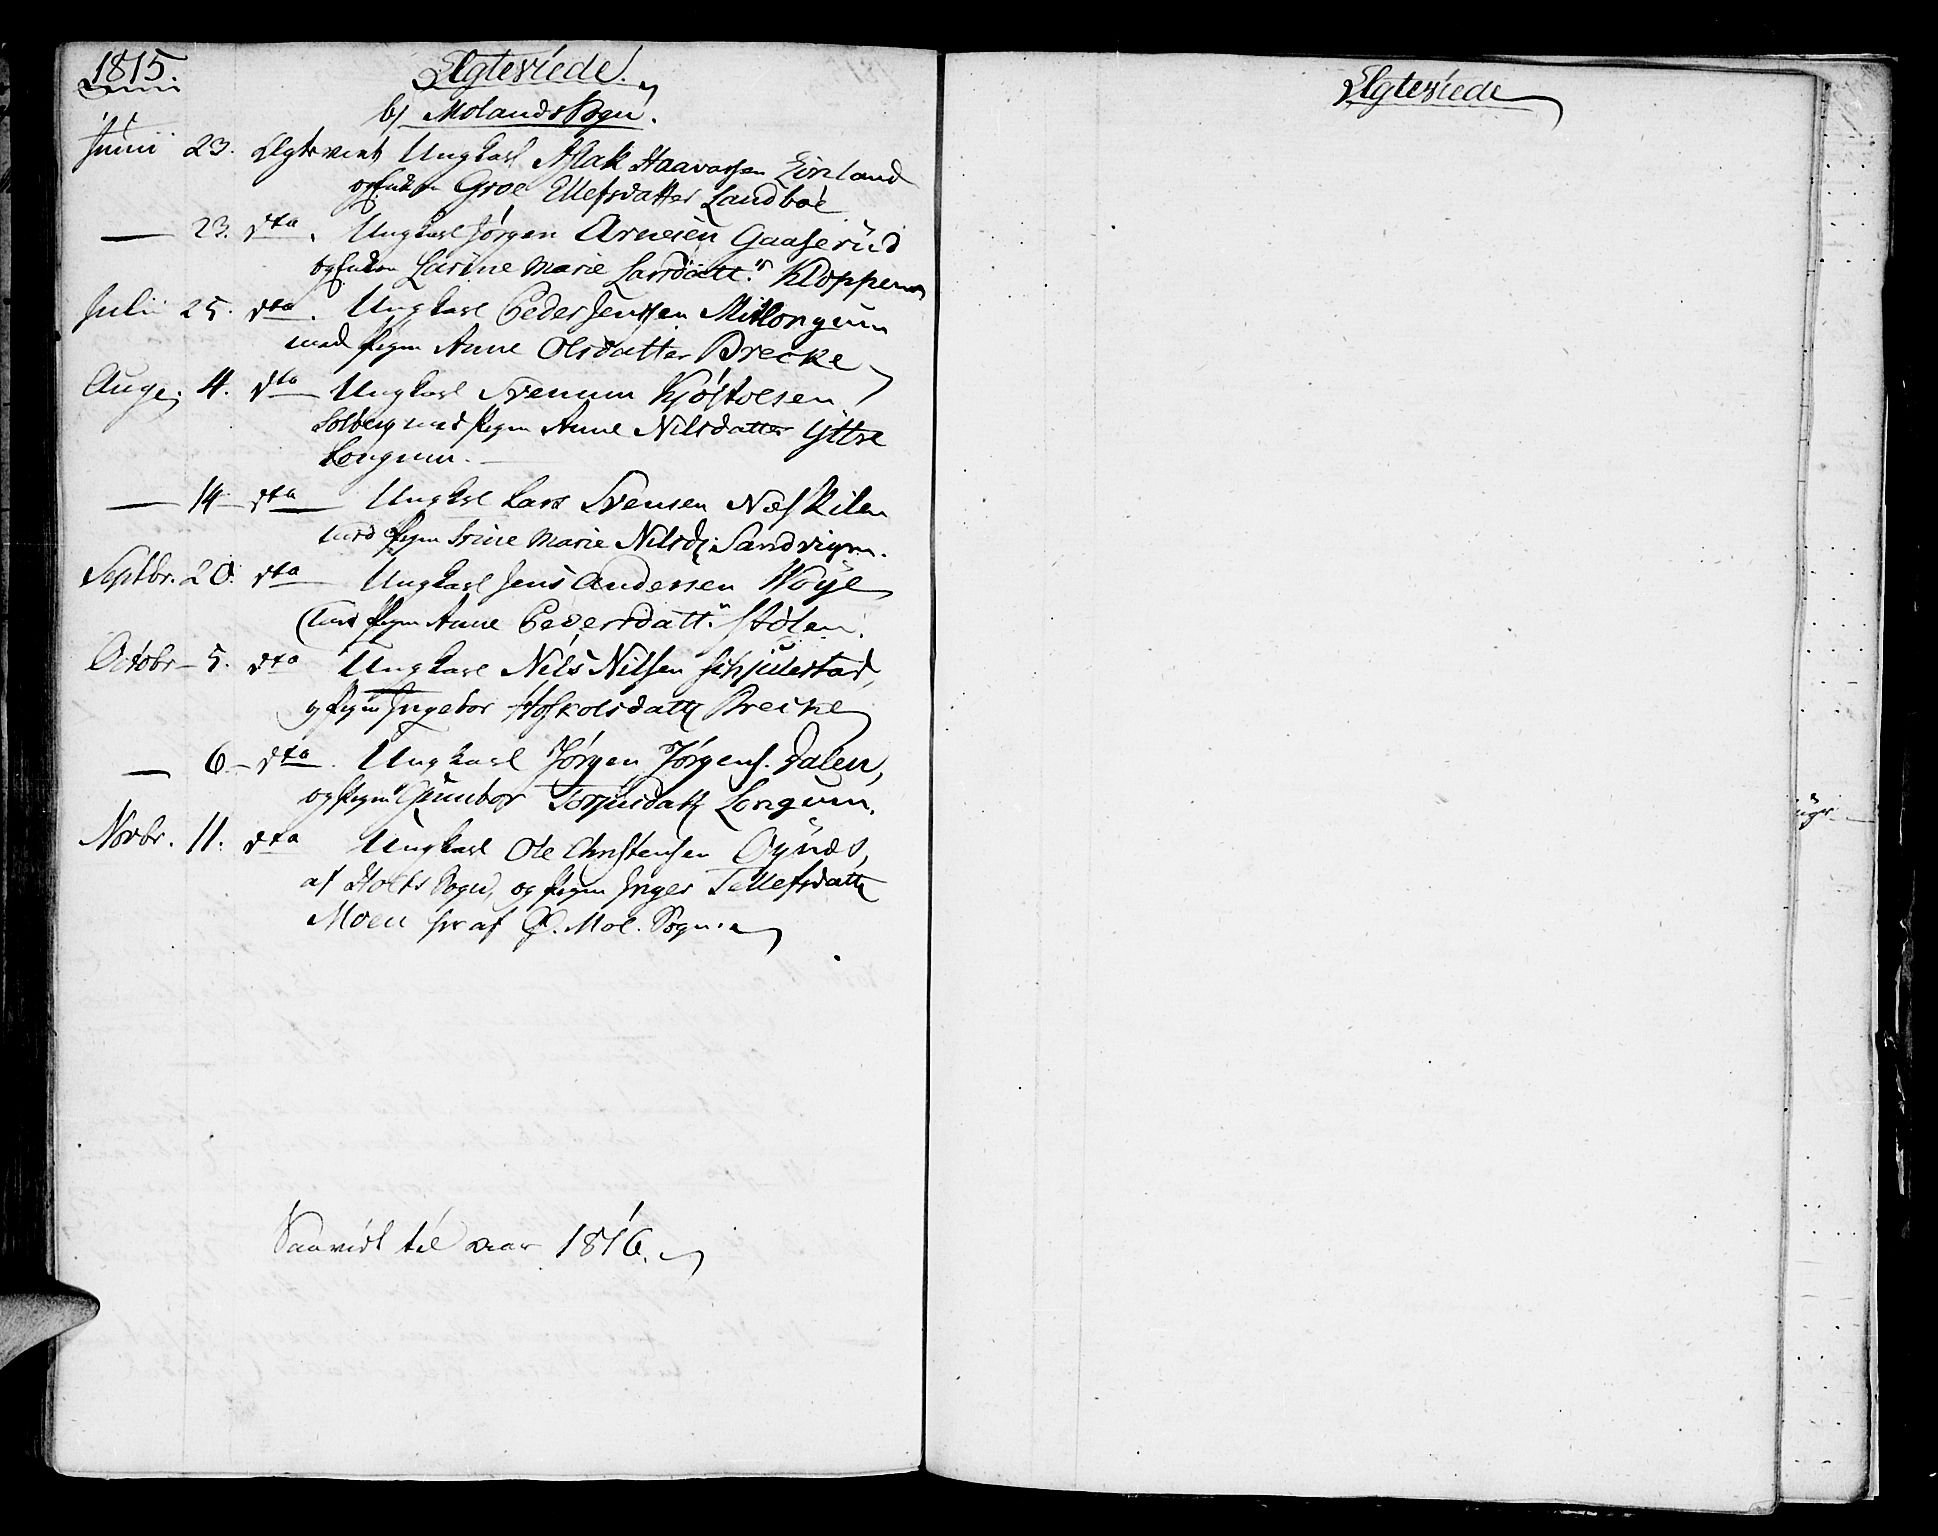 1815.
Ægteviede.
b) Molands Sogn.
Junii 23. Ægteviet Ungkarl Aslak Haavorsen Eivland
og Enken Groe Ellefsdatter Landbøe
— 23. dto. Ungkarl Jørgen Arnesen Gaaserud
og Enken Larine Marie Larsdattr. Kloppene
Julii 25. dto. Ungkarl Peder Jenssen Mitlongum
med Pigen Anne Olsdatter Brecke
Aug. 4. dto Ungkarl Svenum Kjøstolsen
Solberg med Pigen Anne Nilsdatter Yttre
Longum.
— 14 dto Ungkarl Lars Svensen Næskilen
med Pigen Trine Marie Nilsd. Sandvigen.
Septbr. 20. dto Ungkarl Jens Andersen Woye
med Pigen Anne Pedersdattr. Stølen.
Octobr. 5. dto Ungkarl Nils Nilsen Schjulestad,
og Pigen Ingebor Hoskolsdattr Brecke
— 6 — dto. Ungkarl Jørgen Jørgens. Dalen,
og Pigen Gunbor Torjusdattr Longum.
Novbr. 11. dto Ungkarl Ole Christensen Oynæs,
af Holts Sogn, og Pigen Inger Tellefsdattr
Moen her af Ø. Mol. Sogn.
Saavidt til aar 1816.
Ægteviede